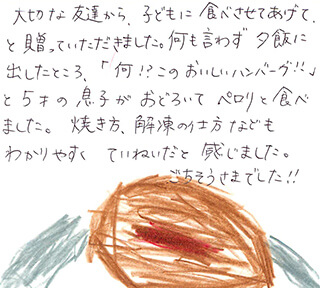 大切な友達から、子どもに食べさせてあげて、
と贈っていただきました。何も言わず夕飯に
出したところ、「何!?このおいしいハンバーグ!!」
と5才の息子がおどろいてペロリと食べ
ました。焼き方、解凍の仕方なども
わかりやすくていねいだと感じました。
ごちそうさまでした!!